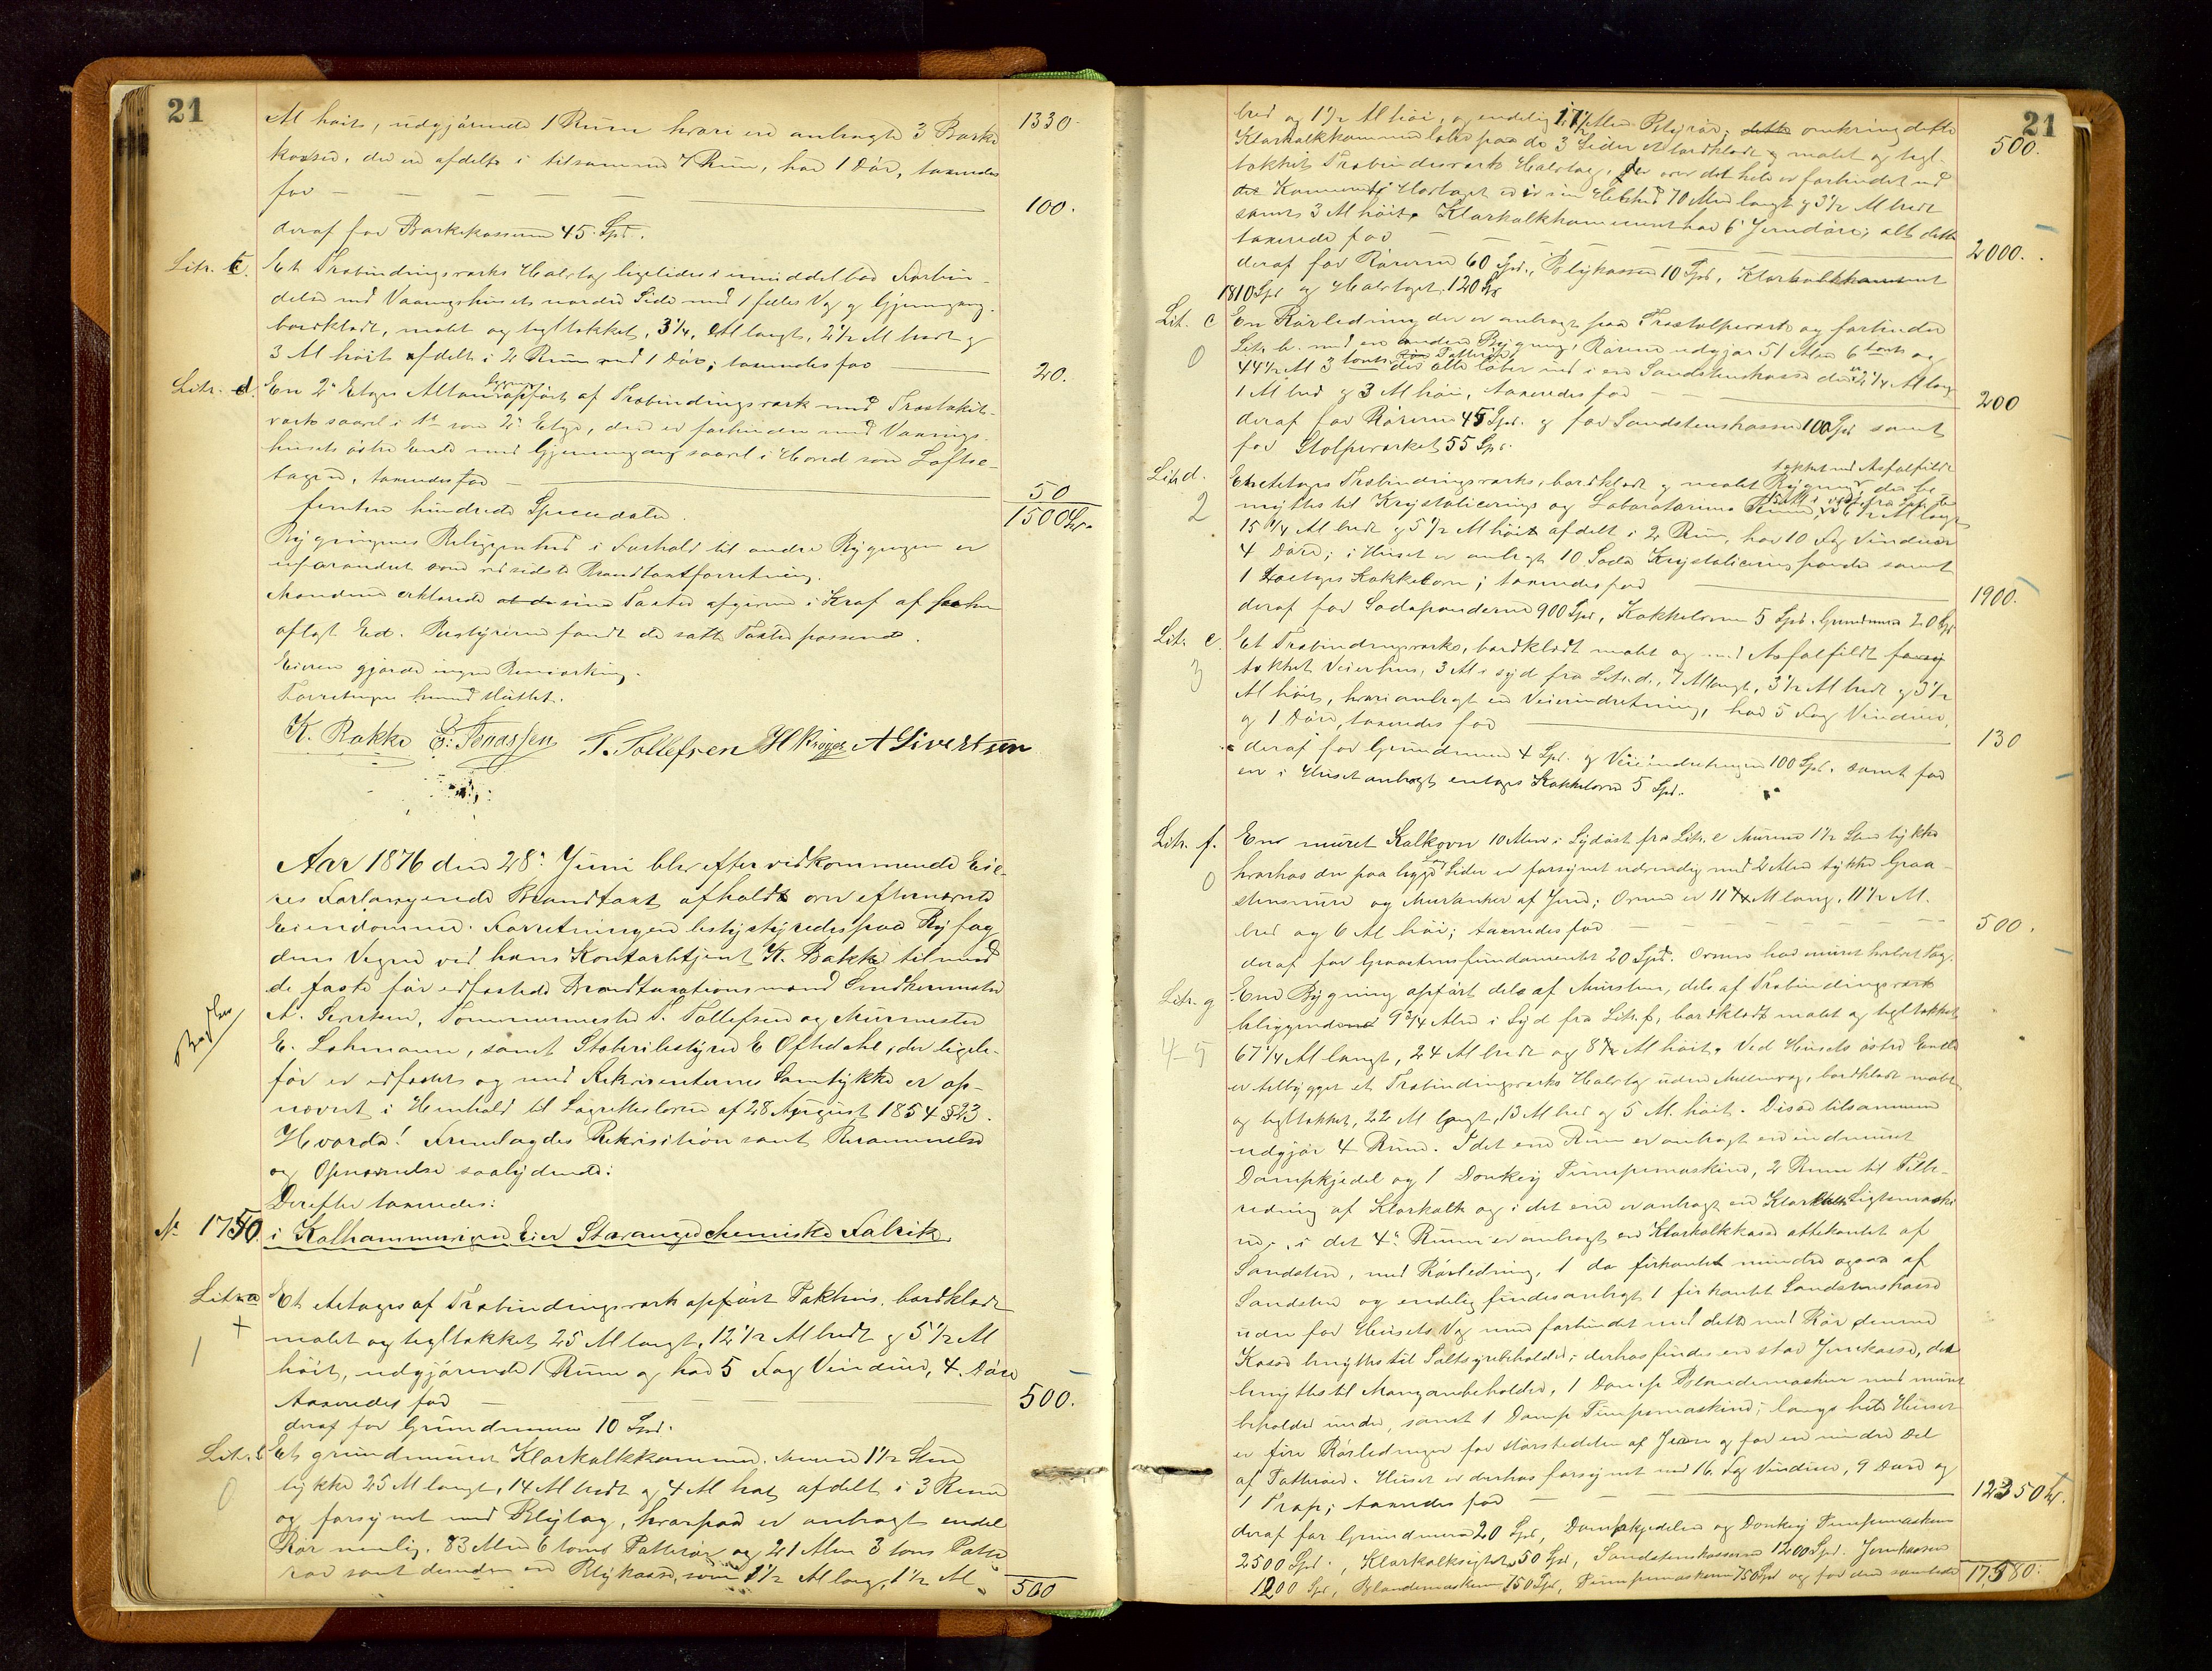 21
Al høit, udgjørende 1 Rum hvori er anbragt 3 Barke
kasser, der er afdelt i tilsammen 7 Rum, har 1 Dør, taxeredes
for — 100.
1330.
deraf for Barkekasserne 45 Spd.
Litr. c. Et Træbindingsværks Halvtag ligeledes i umiddelbar Forbin-
delse med Vaaningshusets nordre Side med 1 fælles Væg og Gjennemgang.
bordklædt, malet og tegltækket, 3 1/4 Al langt, 2 1/2 Al bredt og
3 Al høit afdelt i 2 Rum med 1 Dør; taxeredes for 20.
Litr. d. En 2 Etages Altanbygning opført af Træbindingsværk med Træstakit-
værk saavel i 1ste som 2den Etage, der er forbunden med Vaanings-
husets østre Ende med Gjennemgang saavel i Hoved som Loftse-
tagen, taxeredes for 50
femten hundrede Speciedaler. 1500 Spd.
Bygningernes Beliggenhed i Forhold til andre Bygninger er
uforandret som ved sidste Brandtaxtforretning.
Mændene erklærede at de sine Taxter afgivne i Kraf af forhen
aflagt Ed. Bestyreren fandt de satte Taxter passende.
Eieren gjorde ingen Bemærkning.
Forretningen hermed sluttet.
K. Bakke E. Jonassen T. Tollefsen H Krøger A Sivertsen
Aar 1876 den 28de Juni blev efter vedkommende Eie-
res Forlangende Brandtaxt afholdt over efternævnte
Eiendomme. Forretningen bestyredes paa Byfog-
dens Vegne ved hans Kontorbetjent K. Bakke tilmed
de faste før edfæstede Brandtaxationsmænd Snedkermester
A. Sivertsen, Tømmermester T. Tollefsen og Murmester
E. Lohmann, samt Støberibestyrer E Oftedahl, der ligele-
før er edfæstet og med Rekvirenternes Samtykke er op-
nævnt i Henhold til Lagretteloven af 28 August 1854 § 23.
Hvorda! Fremlagdes Rekvisition samt Berammelse
og Opnævnelse saalydende:
Derefter taxeredes:
No 1750 i Kalhammeren Eier Stavanger chemiske Fabrik.
Litr. a Et 1 Etages af Træbindingsværk opført Pakhus, bordklædt
1 + malet og tegltækket 25 Al langt, 12 1/2 Al bredt og 5 1/2 Al
høit, udgjørende 1 Rum og har 5 Fag Vinduer, 4 Døre
taxeredes for — 500.
deraf for Grundmuren 10 Spd.
Litr. b Et grundmuret Klorkalkkammer, Muren 1 1/2 Sten
0 tykke 25 Al langt, 14 Al bredt og 4 Al høit afdelt i 3 Rum
og forsynet med Blytag, hvorpaa er anbragt endel
Rør nemlig: 83 Alen 6 toms Potterør og 21 Alen 3 toms Potte
rør samt desuden en Blykasse, som 1 1/2 Al lang, 1 1/2 Al
500
21
bred og 1 1/2 Al høi, og endelig 17 1/2 Alen Blyrør; dette omkring dette
500.
Klorkalkkammer løber paa de 3 Sider et bordklædt og malet og tegl-
tækket Træbindesværks Halvtag, der over det hele er forbindet med
det Kammer. Halvtaget er i sin Helhed 70 Alen langt og 3 1/2 Al bredt
samt 3 Al høit. Klorkalkkammeret har 6 Jerndøre; alt dette
taxerede for — 2000.
deraf for Rørerne 60 Spd., Blykassen 10 Spd., Klorkalkkammeret
1810 Spd og Halvtaget 120 Spd
Lit. c En Rørledning der er anbragt paa Træstolpeværk og forbinder
0 Litr. b. med en anden Bygning, Rørene udgjør 51 Alen 6 toms og
44 1/2 Al 3 toms Potterør der alle løber ind i en Sandstenskasse der er 2 1/4 Al lang
1 Al bred og 3 Al høi, taxeredes for — 200
deraf for Rørerne 45 Spd. og for Sandstenskassen 100 Spd samt
for Stolpeværket 55 Spd.
Litr d. En Etages Træbindingsværks, bordklædt og malet Bygning tækket med Asfaltfildt der be-
2 nyttes til Krystalicering og Laboratorium
15 1/4 Al bredt og 5 1/2 Al høit afdelt i 2 Rum, har 10 Fag Vinduer
4 Døre; i Huset er anbragt 10 Soda Krystaliceringspander samt
1 toetages Kakkelovn; taxeredes for 1900.
deraf for Sodapanderne 900 Spd, Kakkelovn 5 Spd. Grundmur 20 Spd
Lit. e. Et Træbindingsværks, bordklædt malet og med Asfaltfildt
3 tækket Veierhus, 3 Al i syd fra Litr. d., 7 Al langt, 3 1/2 Al bredt og 3 1/2
Al høit, hvori anbragt en Veierindretning, har 5 Fag Vinduer,
og 1 Dør, taxeredes for 130
deraf for Grundmuren 4 Spd. og Veieindretningen 100 Spd. samt for
en i Huset anbragt entages Kakkelovn 5 Spd.
Litr. f. En muret Kalkovn 10 Alen i Sydøst fra Litr. e Murene 1 1/2 Sten tykke
0 hvorhos den paa begge Sider er forsynet udvendig med 2 Alen tykke Graa-
stensmure og Murankere af Jern; Ovnen er 11 Al lang, 11 1/2 Al.
bred og 6 Al høi; taxeredes for — 500.
deraf for Graastensfundamentet 20 Spd. Ovnen har muret hvælvet Tag.
Litr. g En Bygning opført dels af Mursten, dels af Træbindingsværk
4-5 beliggende 9 3/4 Alen i Syd fra Litr. f, bordklædt malet og tegltækket
67 1/4 Al langt, 24 Al bredt og 8 Al høit. Ved Husets østre Ende
er tilbygget et Træbindingsværks Halvtag uden Mellemvæg, bordklædt malet
og tegltækket, 22 Al langt, 13 Al bred og 5 Al. høit. Disse tilsammen
udgjør 4 Rum. I det ene Rum er anbragt en indmuret
Dampkjedel og 1 Donkey Pumpemaskine, 2 Rum til Tilbe-
redning af Klorkalk og i det ene er anbragt en Klorkalk Sigtemaski
ne, i det 4de Rum er anbragt en Klorkalkkasse ottekantet af
Sandsten, med Rørledning, 1 do firkantet mindre ogsaa af
Sandsten og endelig findes anbragt 1 firkantet Sandstenskasse
uden for Husets Væg men forbindet med dette med Rør denne
Kasse benyttes til Saltsyrebeholder; derhos findes en stor Jernkasse, der
benyttes til Manganbeholder, 1 Damp Blandemaskine med muret
beholder under, samt 1 Damp Pumpemaskine; langs hele Huset
er fire Rørledninger for størstedelen af Jern og for en mindre Del
af Potterør. Huset er derhos forsynet med 16 Fag Vinduer, 9 Døre og
1 Trap; taxeredes for — 12350 Spd.
deraf for Grundmuren 20 Spd, Dampkjedelen og Donkey Pumpemaskinen
2500 Spd., Klorkalksigten 50 Spd, Sandstenskasserne 1200 Spd. Jernkassen
1200 Spd, Blandemaskinen 750 Spd, Pumpemaskinen 750 Spd og for den samlede
17,580.